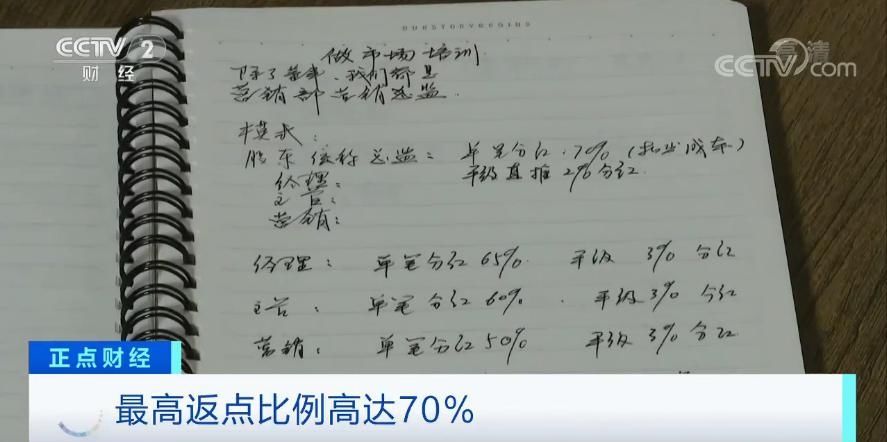 CCTV 2
财经
高清
CCTV.com
做市场培训
除了董事，我们都是
营销部营销总监.
模式:
股东统称总监: 单笔分红.70% (扣出成本)
平级直推2%分红.
经理:
主管:
营销:
经理: 单笔分红65%. 平级3%分红
主管: 单笔分红60%. 平级3%分红
营销: 单笔分红50% 平级3%分红
正点财经
最高返点比例高达70%